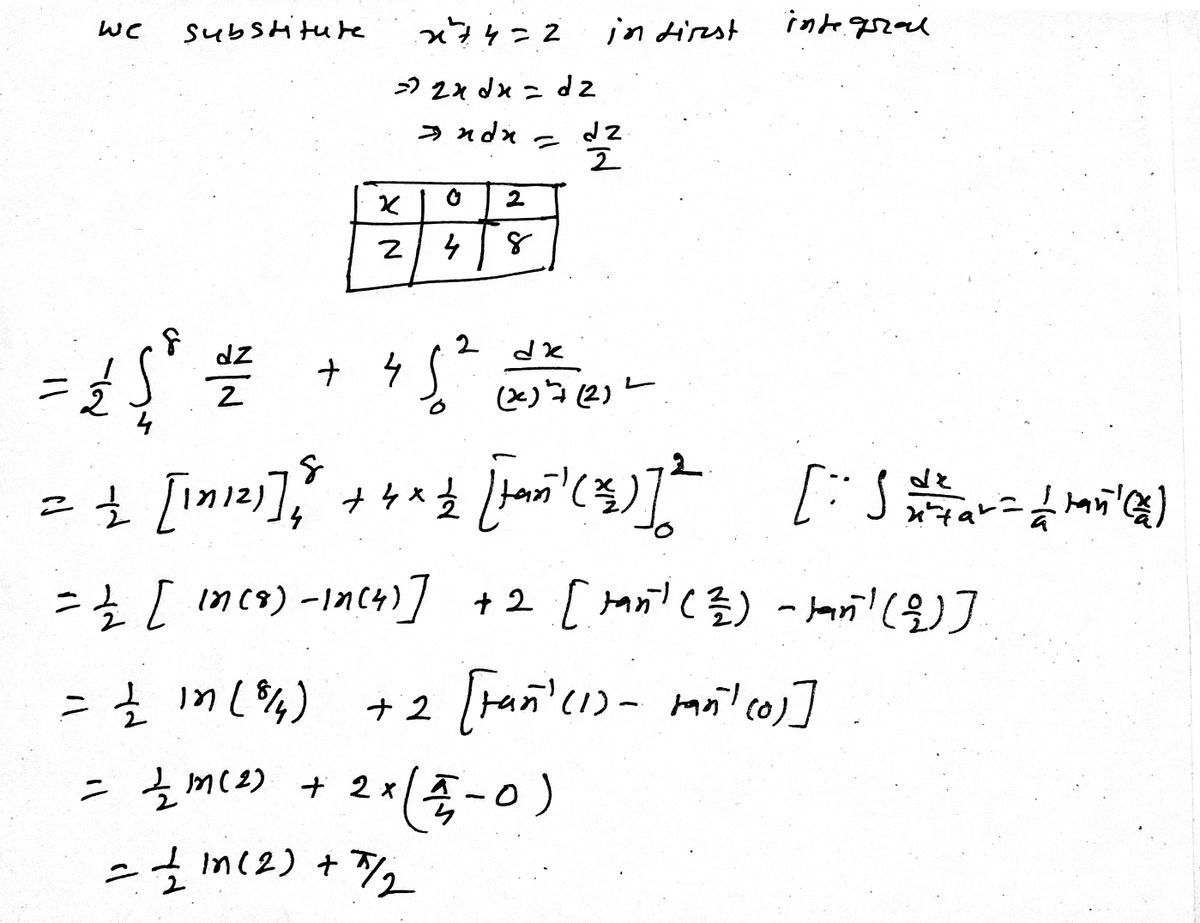 we substitute x²+4=z in first integral
⇒ 2x dx = dz
⇒ x dx = dz/2
x | 0 | 2
z | 4 | 8
= 1/2 ∫₄⁸ dz/z + 4 ∫₀² dx/((x)²+(2)²)
= 1/2 [ln|z|]₄⁸ + 4 × 1/2 [tan⁻¹(x/2)]₀² [∵ ∫ dx/(x²+a²) = 1/a tan⁻¹(x/a)
= 1/2 [ln(8) - ln(4)] + 2 [tan⁻¹(2/2) - tan⁻¹(0/2)]
= 1/2 ln(8/4) + 2 [tan⁻¹(1) - tan⁻¹(0)]
= 1/2 ln(2) + 2 × (π/4 - 0)
= 1/2 ln(2) + π/2